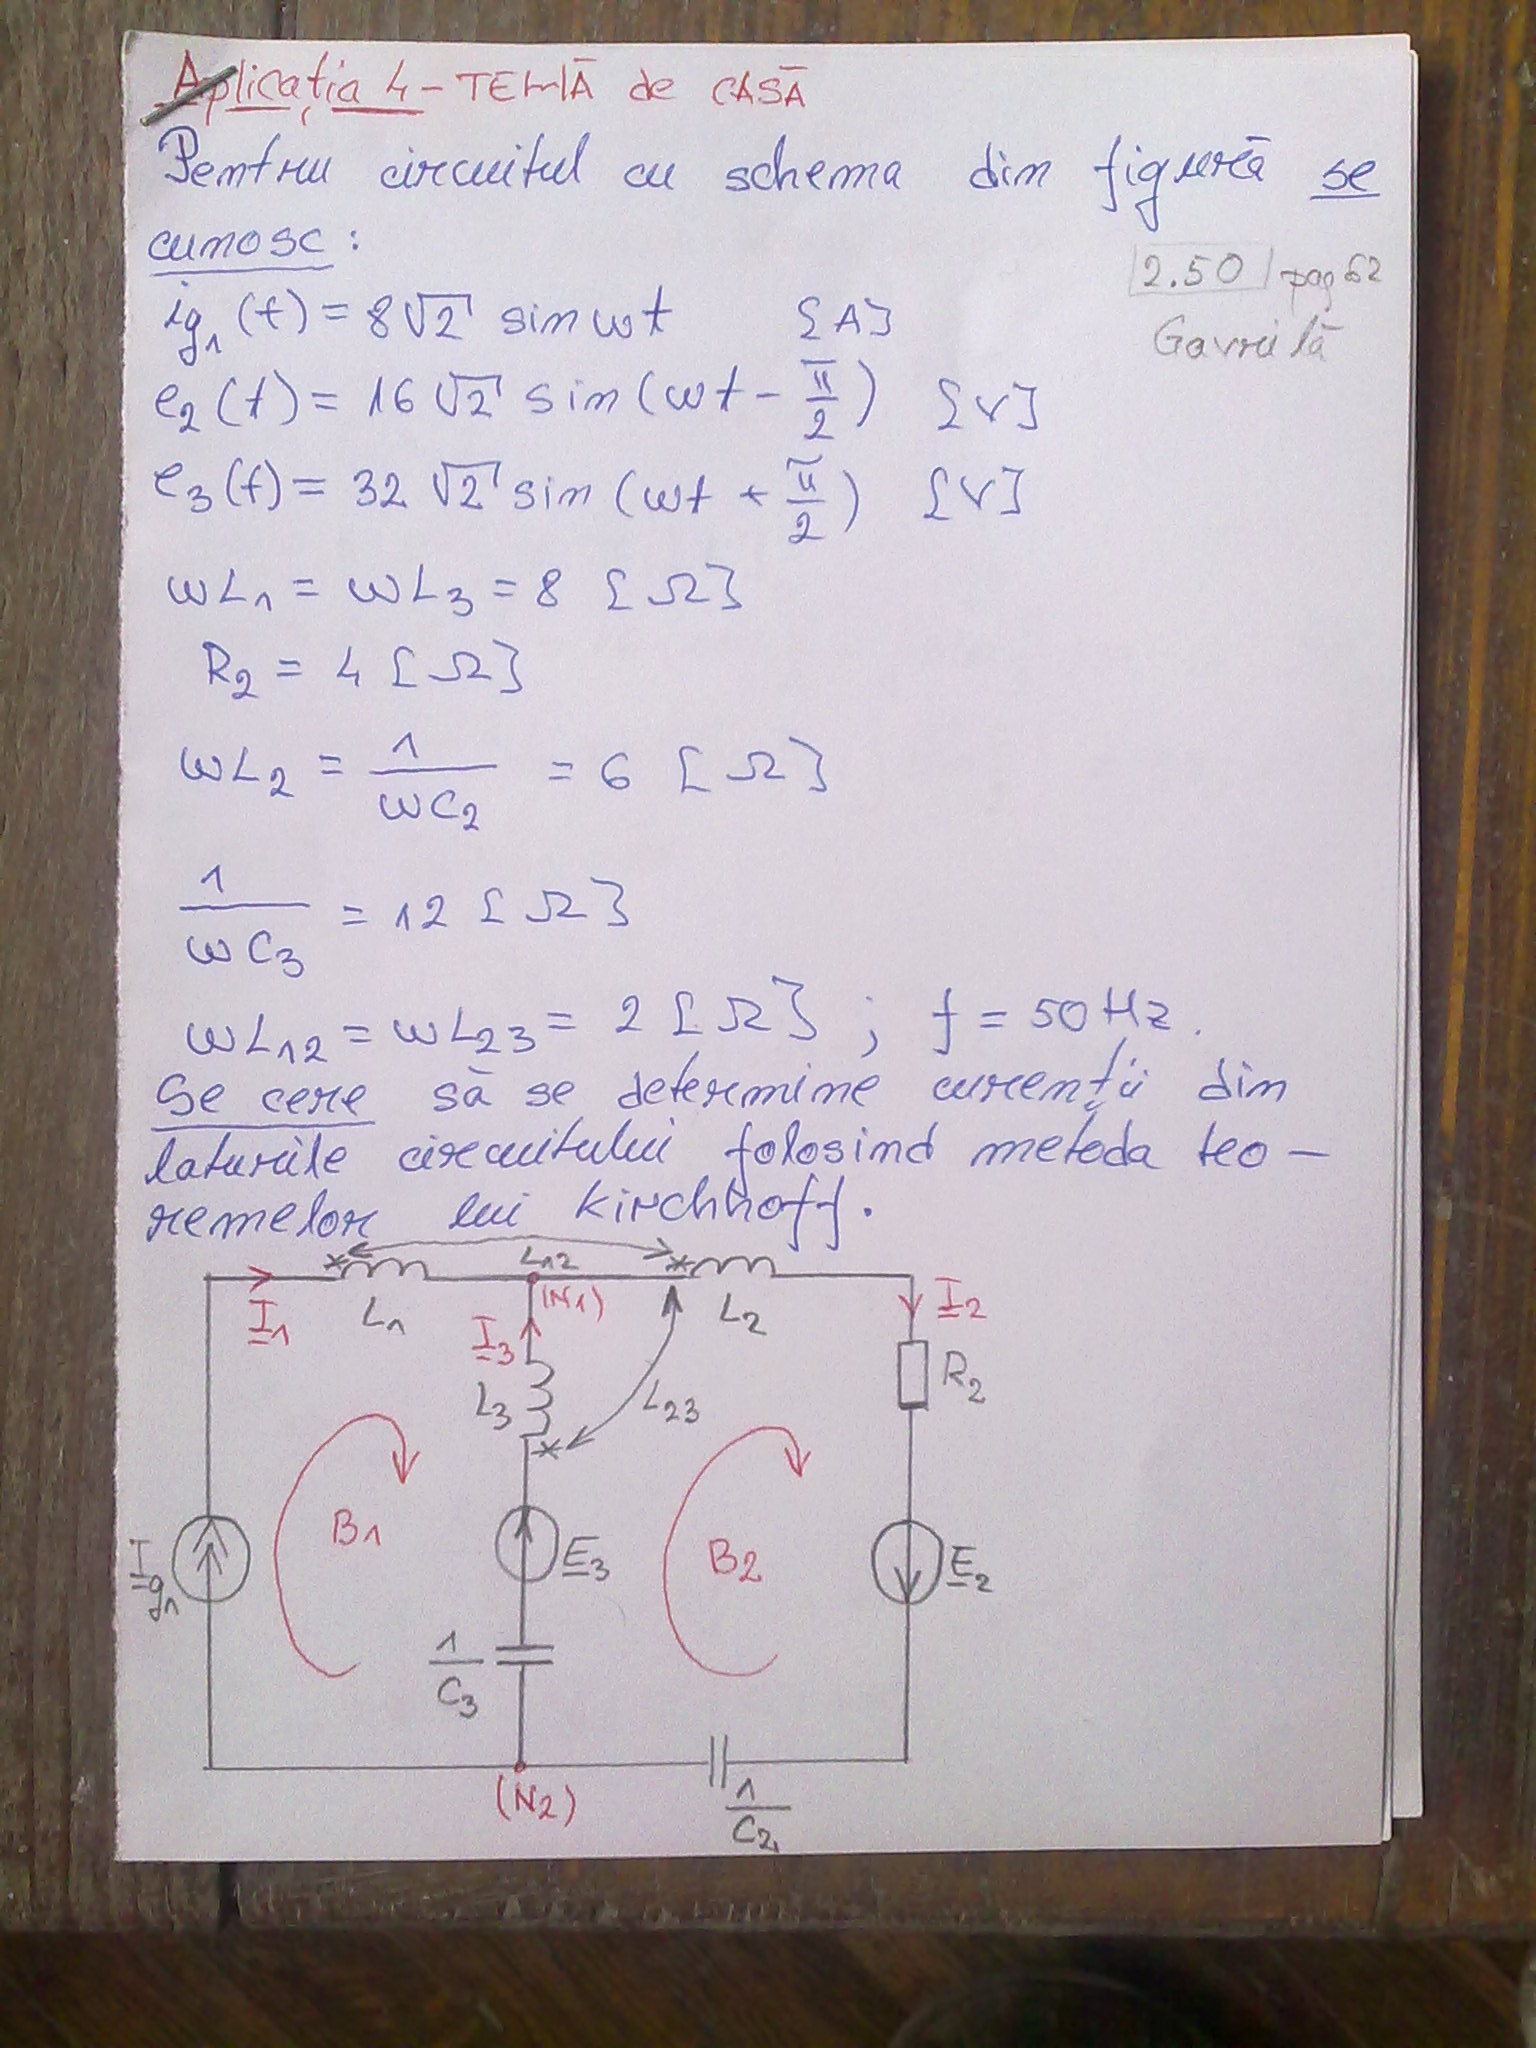 Aplicația 4 - TEMĂ de CASĂ
Pentru circuitul cu schema din figură se
cunosc:
2.50 pag 62
Gavrilă
ig₁(t) = 8√2 sin ωt [A]
e₂(t) = 16√2 sin(ωt - π/2) [V]
e₃(t) = 32√2 sin(ωt + π/2) [V]
ωL₁ = ωL₃ = 8 [Ω]
R₂ = 4 [Ω]
ωL₂ = 1/ωC₂ = 6 [Ω]
1/ωC₃ = 12 [Ω]
ωL₁₂ = ωL₂₃ = 2 [Ω] ; f = 50 Hz.
Se cere să se determine curenții din
laturile circuitului folosind metoda teo-
remelor lui Kirchhoff.
* L₁₂ *
I₁ L₁ (N1) L₂ I₂
I₃ R₂
L₃ L₂₃
*
B1 B2
Ig₁ E₃ E₂
1/C₃
(N2) 1/C₂